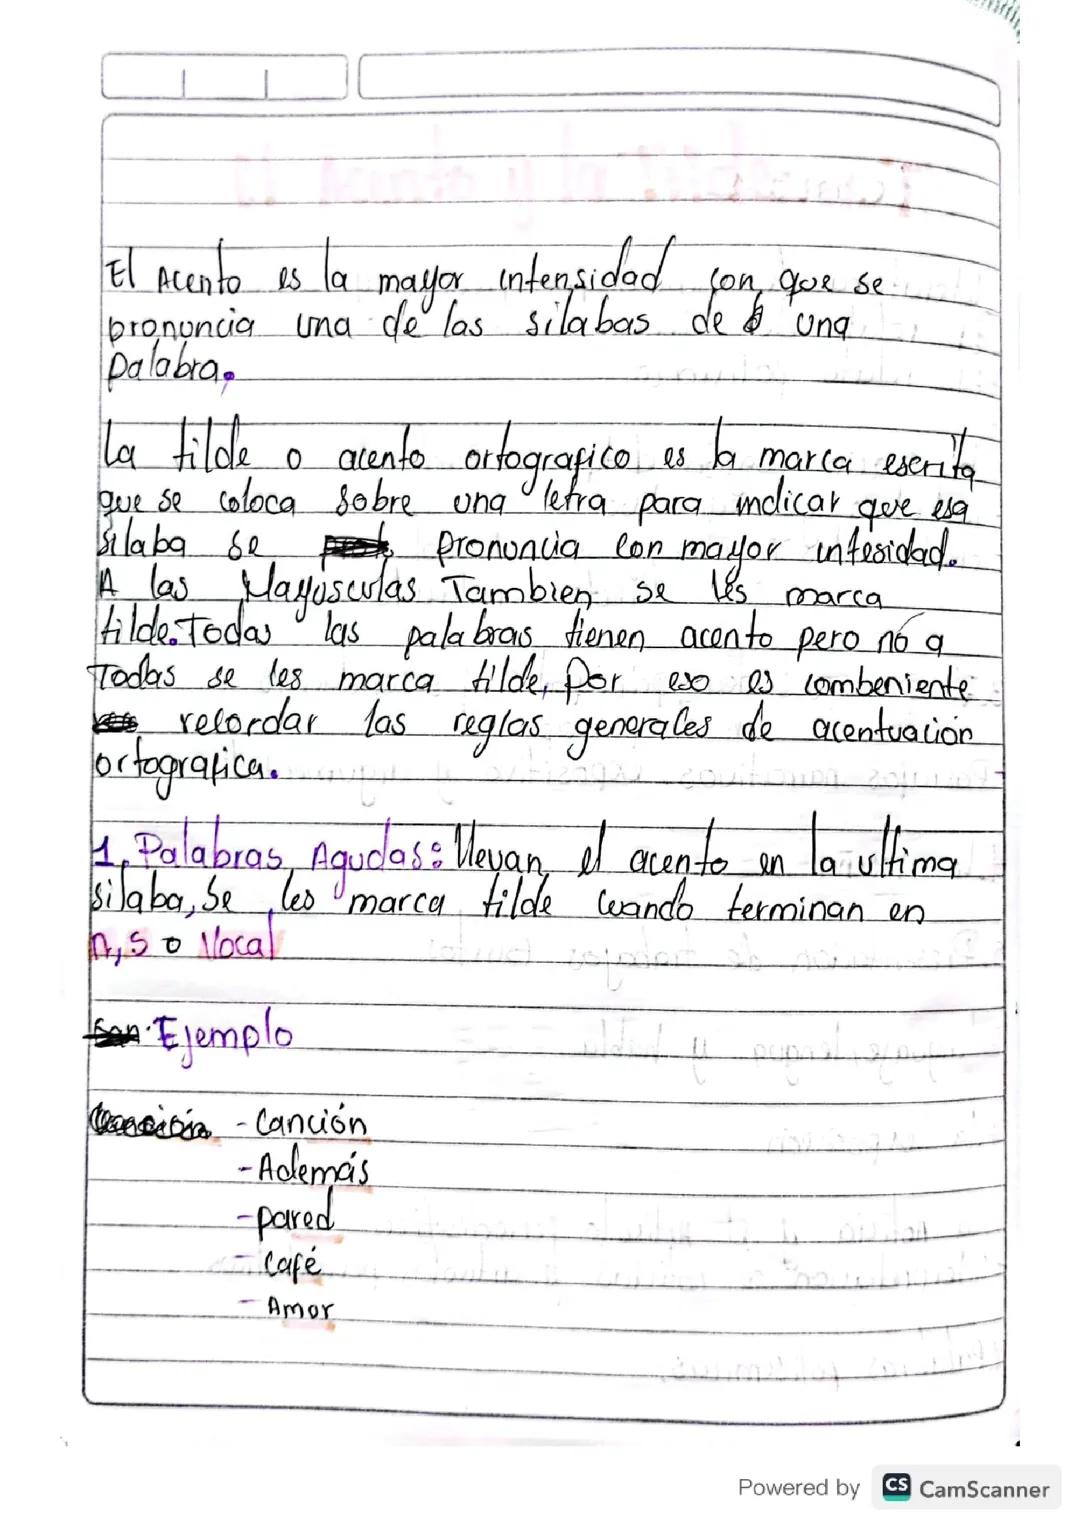 El Acento es la mayor intensidad con que se
pronuncia una de las silabas de una
palabra.
La tilde o acento ortografico es la marca escrita
que se coloca sobre una letra para indicar que esa
silaba se pronuncia con mayor intesidad.
A las Mayúsculas Tambien se les marca
tilde. Todas las palabras tienen acento pero no a
Todas se les marca tilde, Por eso es combeniente
recordar las reglas generales de acentuación
ortografica.
1. Palabras Agudas: llevan el acento en la ultima
silaba, Se les marca tilde cuando terminan en
n, s o Vocal
Ejemplo
- Canción
- Además
- pared
- Café
- Amor
Powered by CS CamScanner